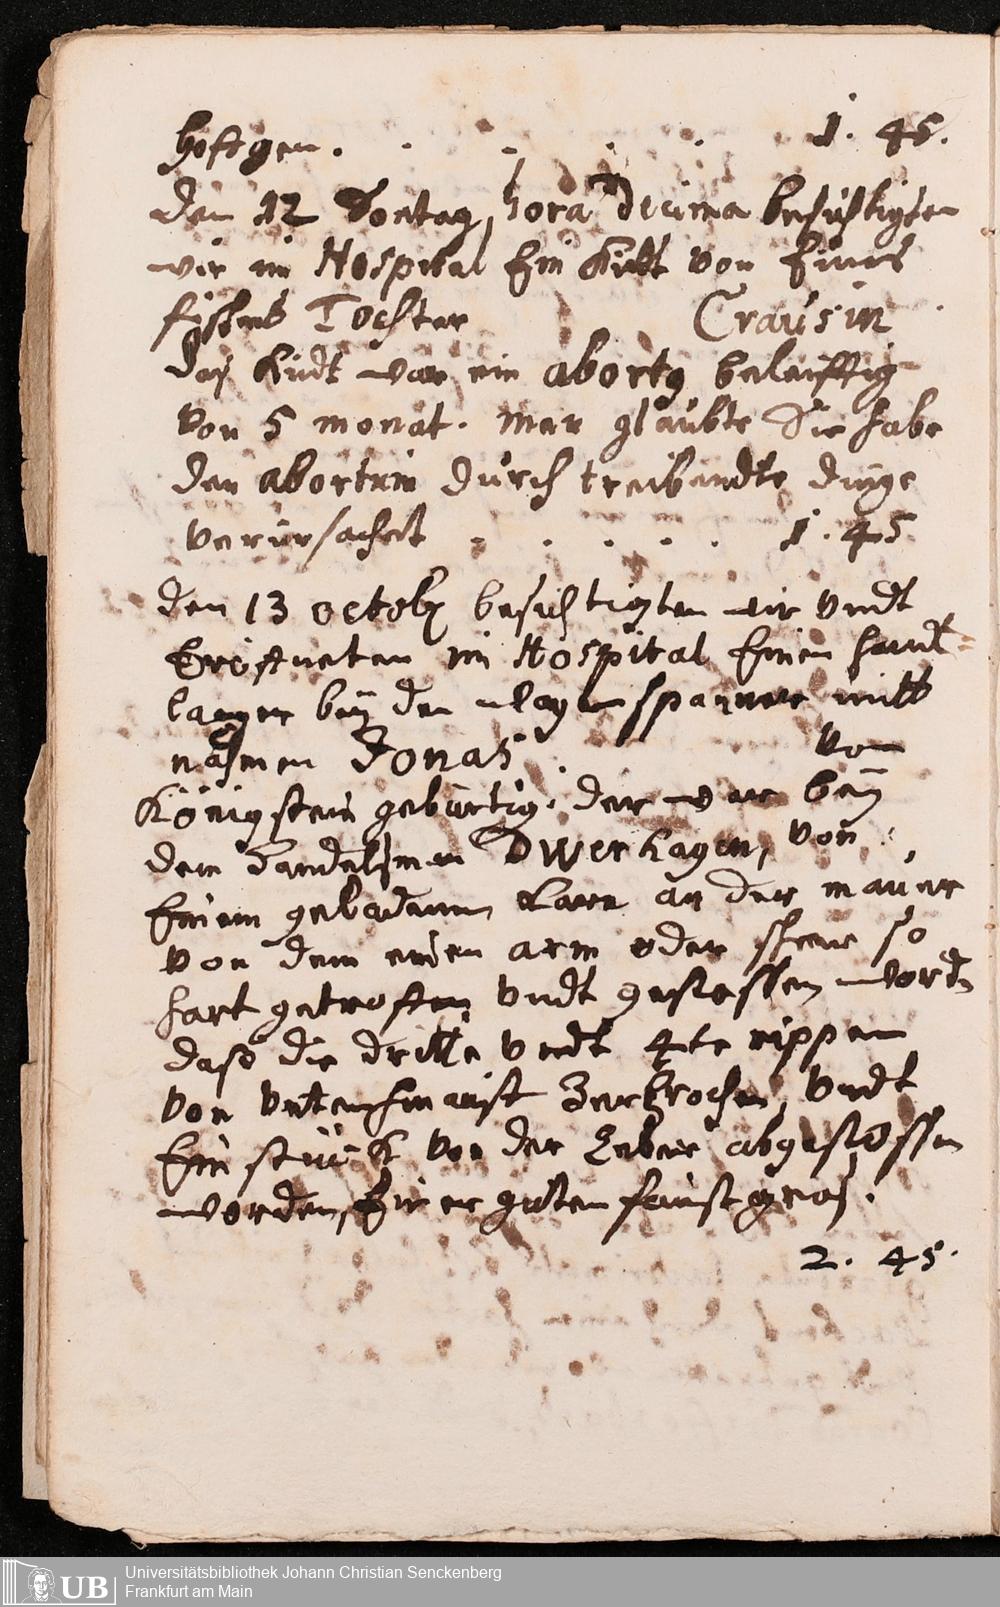 hoftgen. . . . . 1. 45.
den 12 Sontag, hora decima besichtigten
wir im Hospital Ein Kindt von Eines
fischers Tochter Crausin
daß Kindt war ein abortg beleiffig
von 5 monat. man glaubte Sie habe
den abortum durch treibendte dinge
verursachet . . . . . 1. 45
den 13 octobr besichtigten wir vndt
Eröfneten im Hospital Einen handt-
langer beÿ den wagenspanner mitt
nahmen Jonas von
Königstein gebürtig. der war beÿ
dem Handelsman Dwerhagen, von
Einem geladenen Karn an der mauer
von dem einen arm oder so
hart getroffen vndt gestossen wordn
dass die dritte vndt 4te rippen
von vnten hinauf zerbrochen, vndt
Ein stück von der Leber abgestossen
worden, Einer guten faust gros.
2. 45.
Universitätsbibliothek Johann Christian Senckenberg
UB Frankfurt am Main